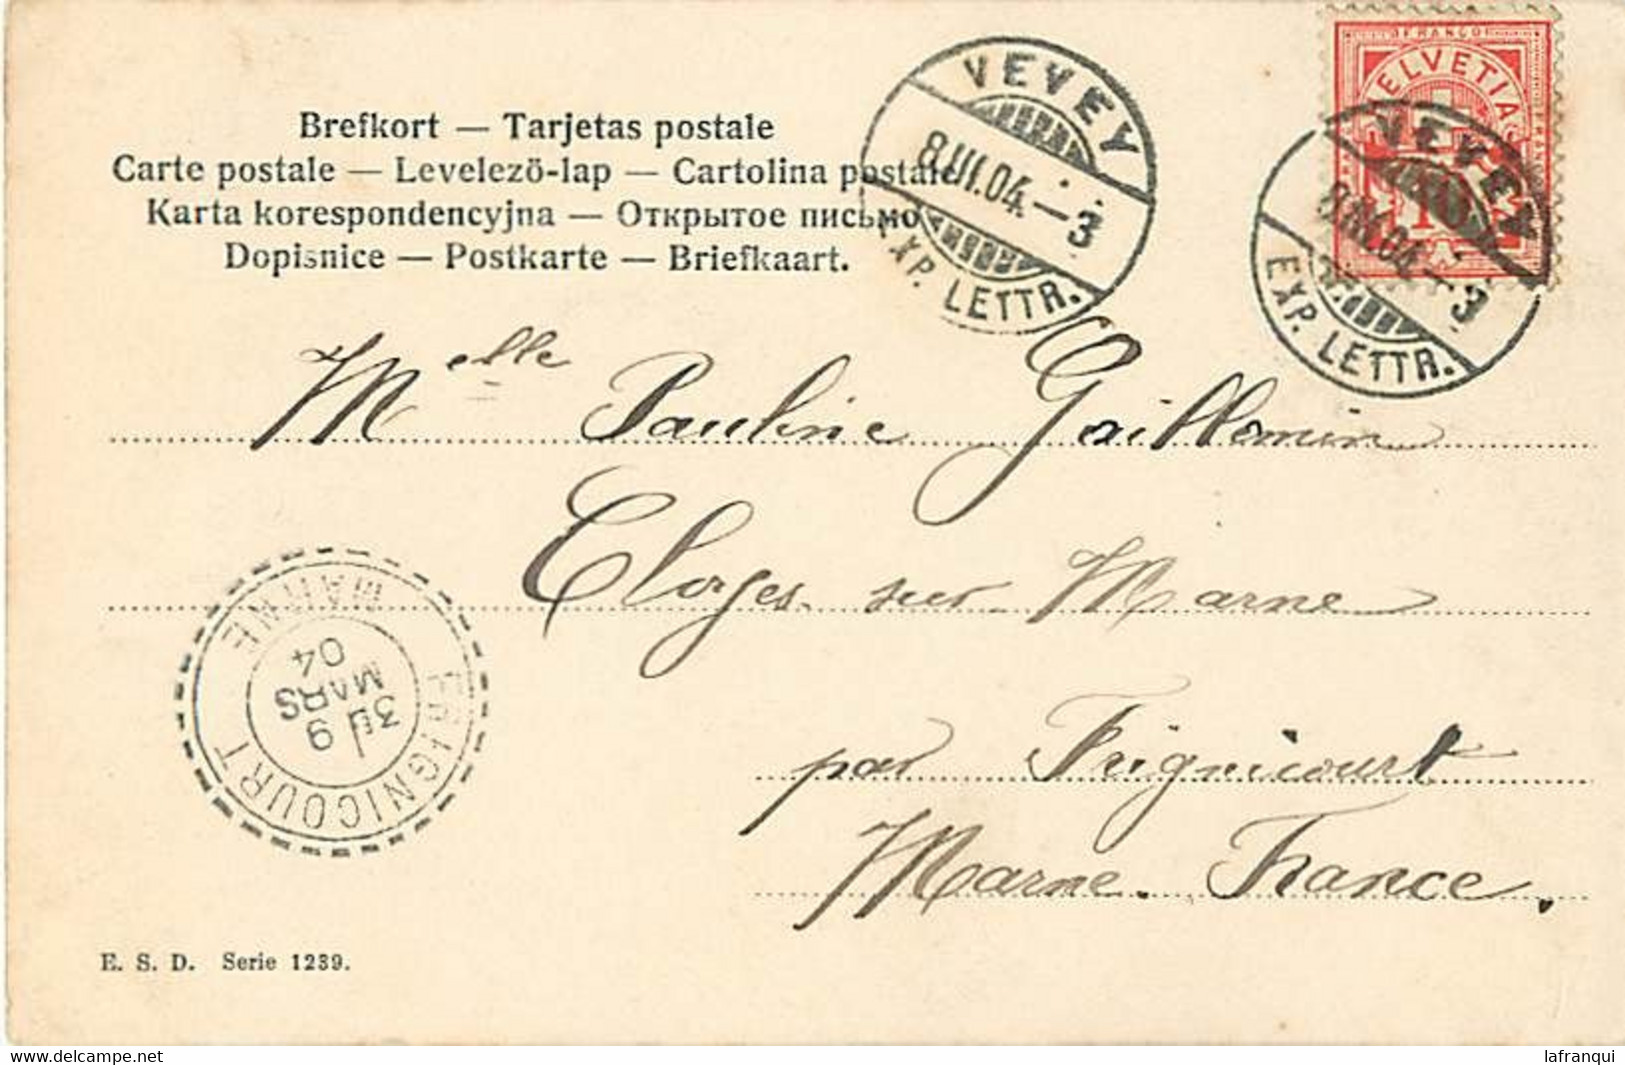 Brefkort — Tarjetas postale
Carte postale — Levelező-lap — Cartolina postale
Karta korespondencyjna — Открытое письмо
Dopisnice — Postkarte — Briefkaart.
VEVEY
8.III.04.—3
EXP. LETTR.
FRANCO
HELVETIA
10
VEVEY
8.III.04.—3
EXP. LETTR.
Melle Pauline Gaillemin
Cloyes sur Marne
par Frignicourt
Marne. France.
FRIGNICOURT
3E 9
MARS
04
MARNE
E. S. D. Serie 1239.
delcampe.net
lafranqui